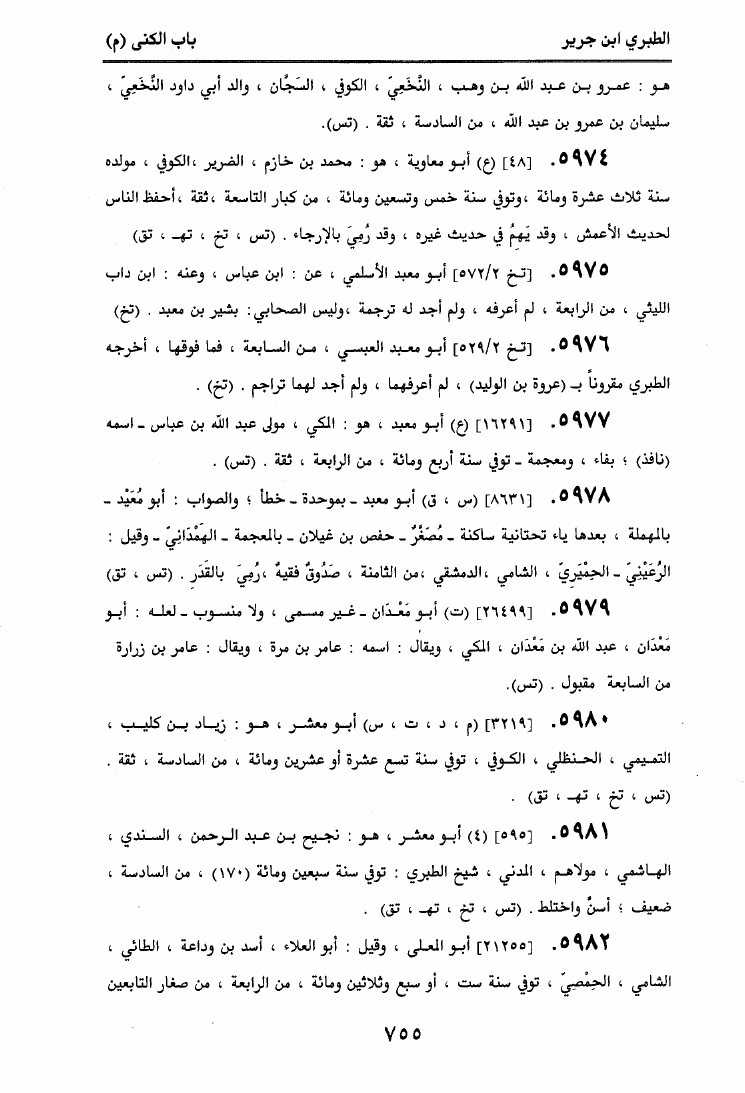 الطبري ابن جرير
باب الكنى (م)
هو : عمرو بن عبد الله بن وهب ، النَّخَعِيّ ، الكوفي ، السَجَّان ، والد أبي داود النَّخَعِيّ ،
سليمان بن عمرو بن عبد الله ، من السادسة ، ثقة . (تس).
٥٩٧٤. [٤٨] (ع) أبو معاوية ، هو : محمد بن خازم ، الضرير ،الكوفي ، مولده
سنة ثلاث عشرة ومائة ،وتوفي سنة خمس وتسعين ومائة ، من كبار التاسعة ،ثقة ،أحفظ الناس
لحديث الأعمش ، وقد يَهِمُ في حديث غيره ، وقد رُمِيَ بالإرجاء . (تس ، تخ ، تهـ ، تق)
٥٩٧٥. [تخ ٥٧٢/٢] أبو معبد الأسلمي ، عن : ابن عباس ، وعنه : ابن داب
الليثي ، من الرابعة ، لم أعرفه ، ولم أجد له ترجمة ،وليس الصحابي: بشير بن معبد . (تخ)
٥٩٧٦. [تخ ٥٢٩/٢] أبو معبد العبسي ، من السابعة ، فما فوقها ، أخرجه
الطبري مقروناً بـ (عروة بن الوليد) ، لم أعرفهما ، ولم أجد لهما تراجم . (تخ) .
٥٩٧٧. [١٦٢٩١] (ع) أبو معبد ، هو : المكي ، مولى عبد الله بن عباس ـ اسمه
(نافذ) ؛ بفاء ، ومعجمة ـ توفي سنة أربع ومائة ، من الرابعة ، ثقة . (تس) .
٥٩٧٨. [٨٦٣١] (س ، ق) أبو معبد ـ بموحدة ـ خطأ ؛ والصواب : أبو مُعَيْد ـ
بالمهملة ، بعدها ياء تحتانية ساكنة ـ مُصَغَّرٌ ـ حفص بن غيلان ـ بالمعجمة ـ الهَمْدَانِيّ ـ وقيل :
الرُعَيْنِيّ ـ الحِمْيَرِيّ ، الشامي ،الدمشقي ،من الثامنة ، صَدُوقٌ فقيهٌ ،رُمِيَ بالقَدَرِ . (تس ، تق)
٥٩٧٩. [٢٦٤٩٩] (ت) أبو مَعْدَان ـ غير مسمى ، ولا منسوب ـ لعله : أبو
مَعْدَان ، عبد الله بن مَعْدَان ، المكي ، ويقال : اسمه : عامر بن مرة ، ويقال : عامر بن زرارة
من السابعة مقبول . (تس).
٥٩٨٠. [٣٢١٩] (م ، د ، ت ، س) أبو معشر ، هو : زياد بن كليب ،
التميمي ، الحنظلي ، الكوفي ، توفي سنة تسع عشرة أو عشرين ومائة ، من السادسة ، ثقة .
(تس ، تخ ، تهـ ، تق) .
٥٩٨١. [٥٩٥] (٤) أبو معشر ، هو : نجيح بن عبد الرحمن ، السندي ،
الهاشمي ، مولاهم ، المدني ، شيخ الطبري : توفي سنة سبعين ومائة (١٧٠) ، من السادسة ،
ضعيف ؛ أسنَّ واختلط . (تس ، تخ ، تهـ ، تق) .
٥٩٨٢. [٢١٢٥٥] أبو المعلى ، وقيل : أبو العلاء ، أسد بن وداعة ، الطائي ،
الشامي ، الحِمْصِيّ ، توفي سنة ست ، أو سبع وثلاثين ومائة ، من الرابعة ، من صغار التابعين
٧٥٥